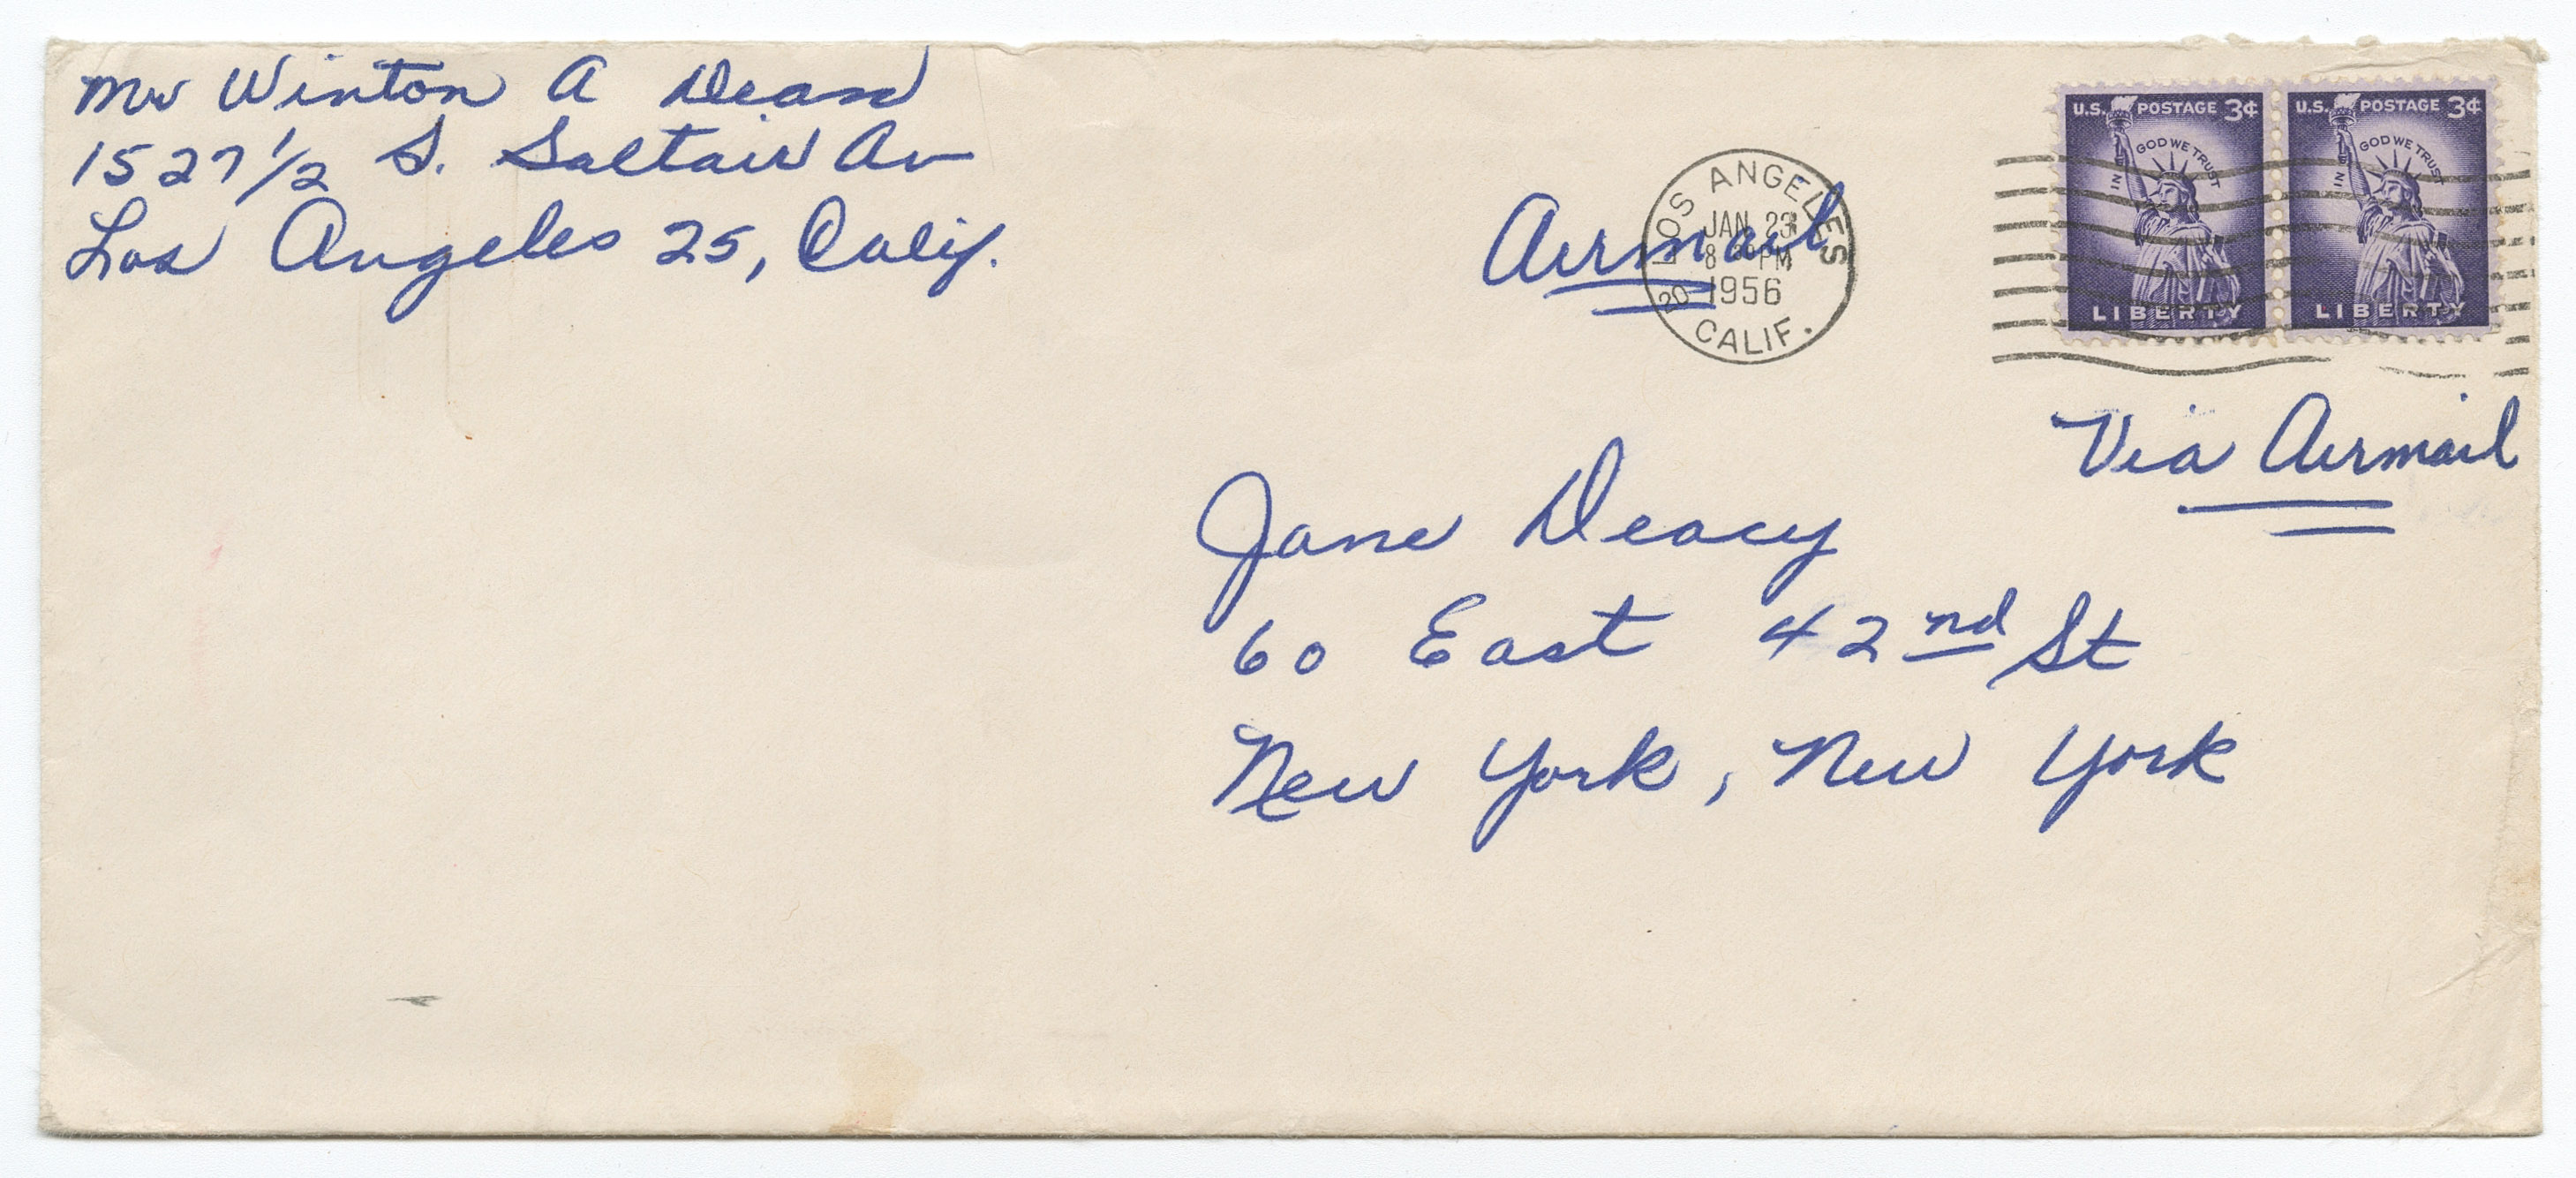 Mr Winton A Dean
1527 1/2 S. Saltair Av
Los Angeles 25, Calif.
U.S. POSTAGE 3¢
IN GOD WE TRUST
LIBERTY
U.S. POSTAGE 3¢
IN GOD WE TRUST
LIBERTY
Airmail
LOS ANGELES
JAN 23
8 PM
1956
20
CALIF.
Via Airmail
Jane Deacy
60 East 42nd St
New York, New York